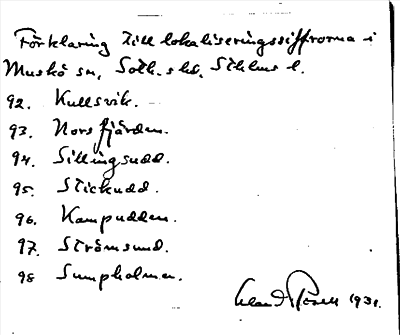 Förklaring till lokaliseringssiffrorna i
Muskö sn, Soth. skg. Sthlms l.
92. Kullsvik.
93. Norsfjärden.
94. Sillingsudd.
95. Stickudd.
96. Kampudden.
97. Strömsund.
98 Sumpholmen.
1931.